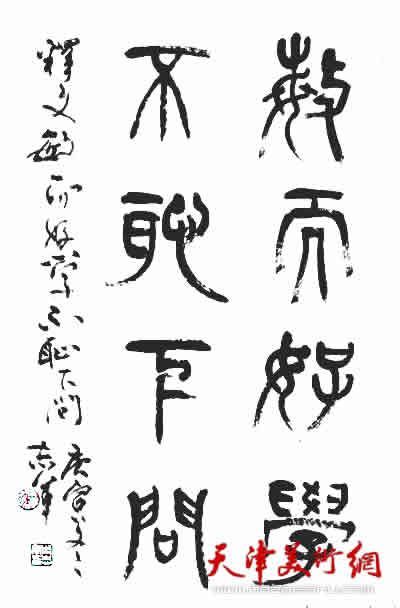 敏而好學
不恥下問
釋文敏而好學不恥下問
庚寅
志
天津美術網